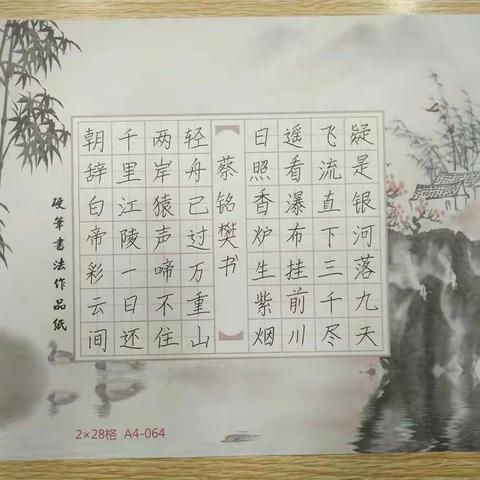 朝辞白帝彩云间
千里江陵一日还
两岸猿声啼不住
轻舟已过万重山
蔡铭樊书
日照香炉生紫烟
遥看瀑布挂前川
飞流直下三千尽
疑是银河落九天
硬笔书法作品纸
2×28格 A4-064